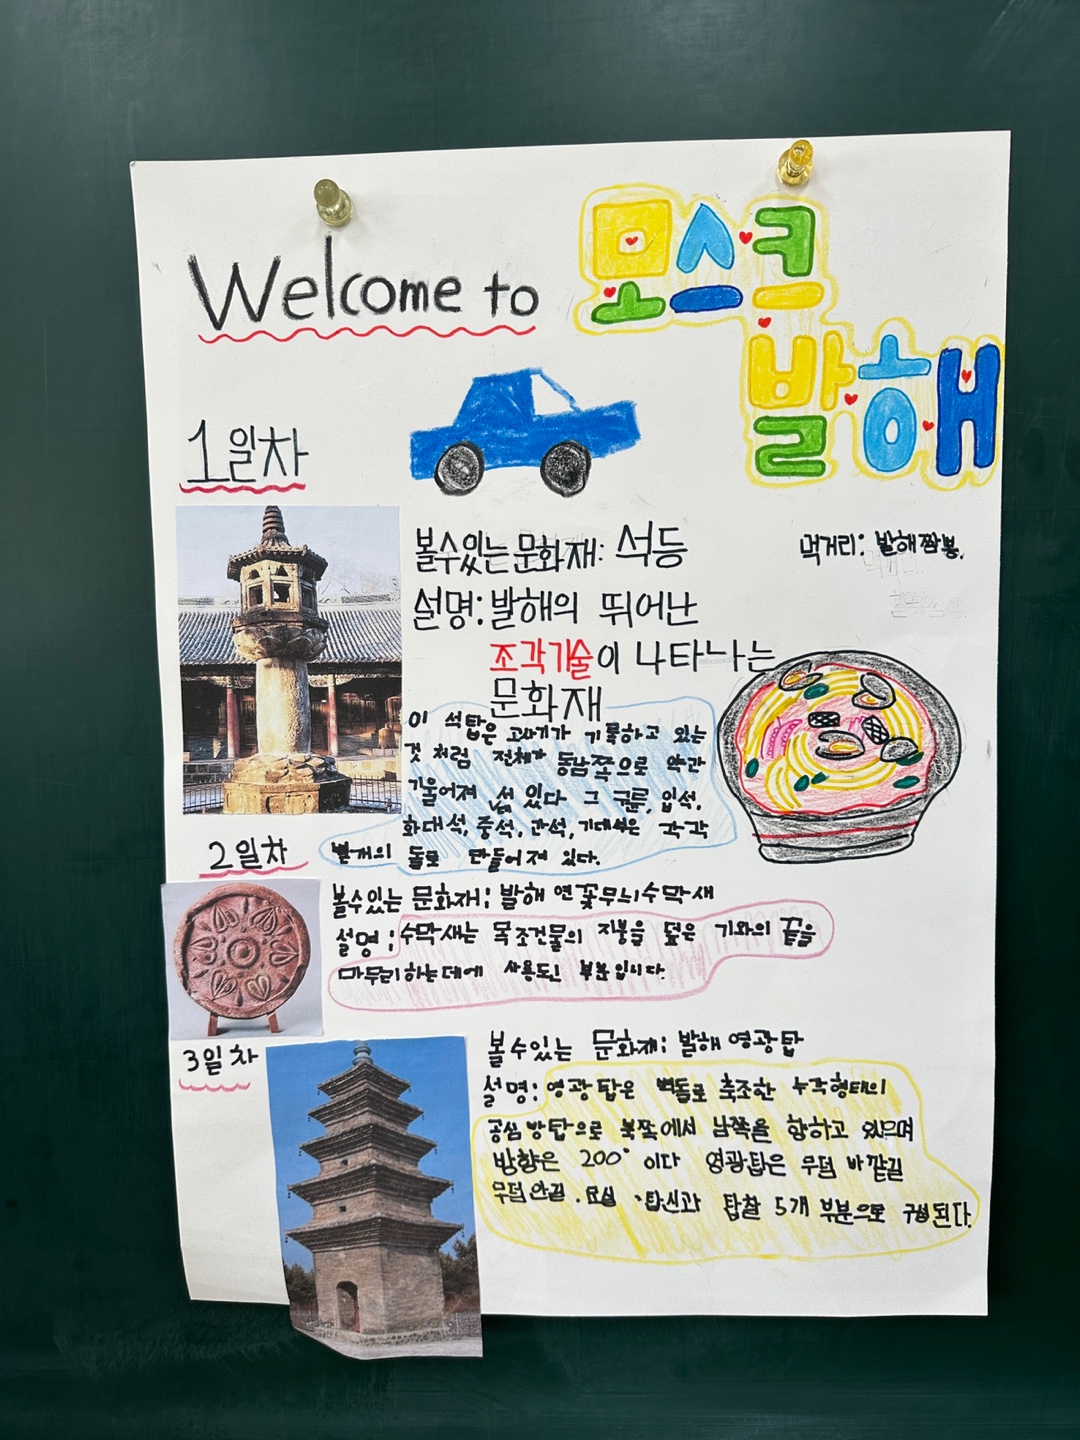 Welcome to 모스크
발해
1일차
볼수있는 문화재: 석등
먹거리: 발해짬뽕.
설명: 발해의 뛰어난
조각기술이 나타나는
문화재
이 석탑은 고사기가 기록하고 있는
것 처럼 전체가 동남쪽으로 약간
기울어져 섰 있다 그 륜, 입석,
화대석, 중석, 간석, 기대부는 각각
별개의 돌로 만들어져 있다.
2일차
볼수있는 문화재; 발해 연꽃무늬수막새
설명; 수막새는 목조건물의 지붕을 덮은 기와의 끝을
마무리하는데에 사용도인 부분입니다.
3일차
볼수있는 문화재; 발해 영광탑
설명; 영광탑은 벽돌로 축조한 누각형태의
공심 방탑으로 북쪽에서 남쪽을 향하고 있으며
방향은 200° 이다 영광탑은 무덤 바깥길
무덤안길, 묘실, 탑신과 탑찰 5개 부분으로 구성된다.